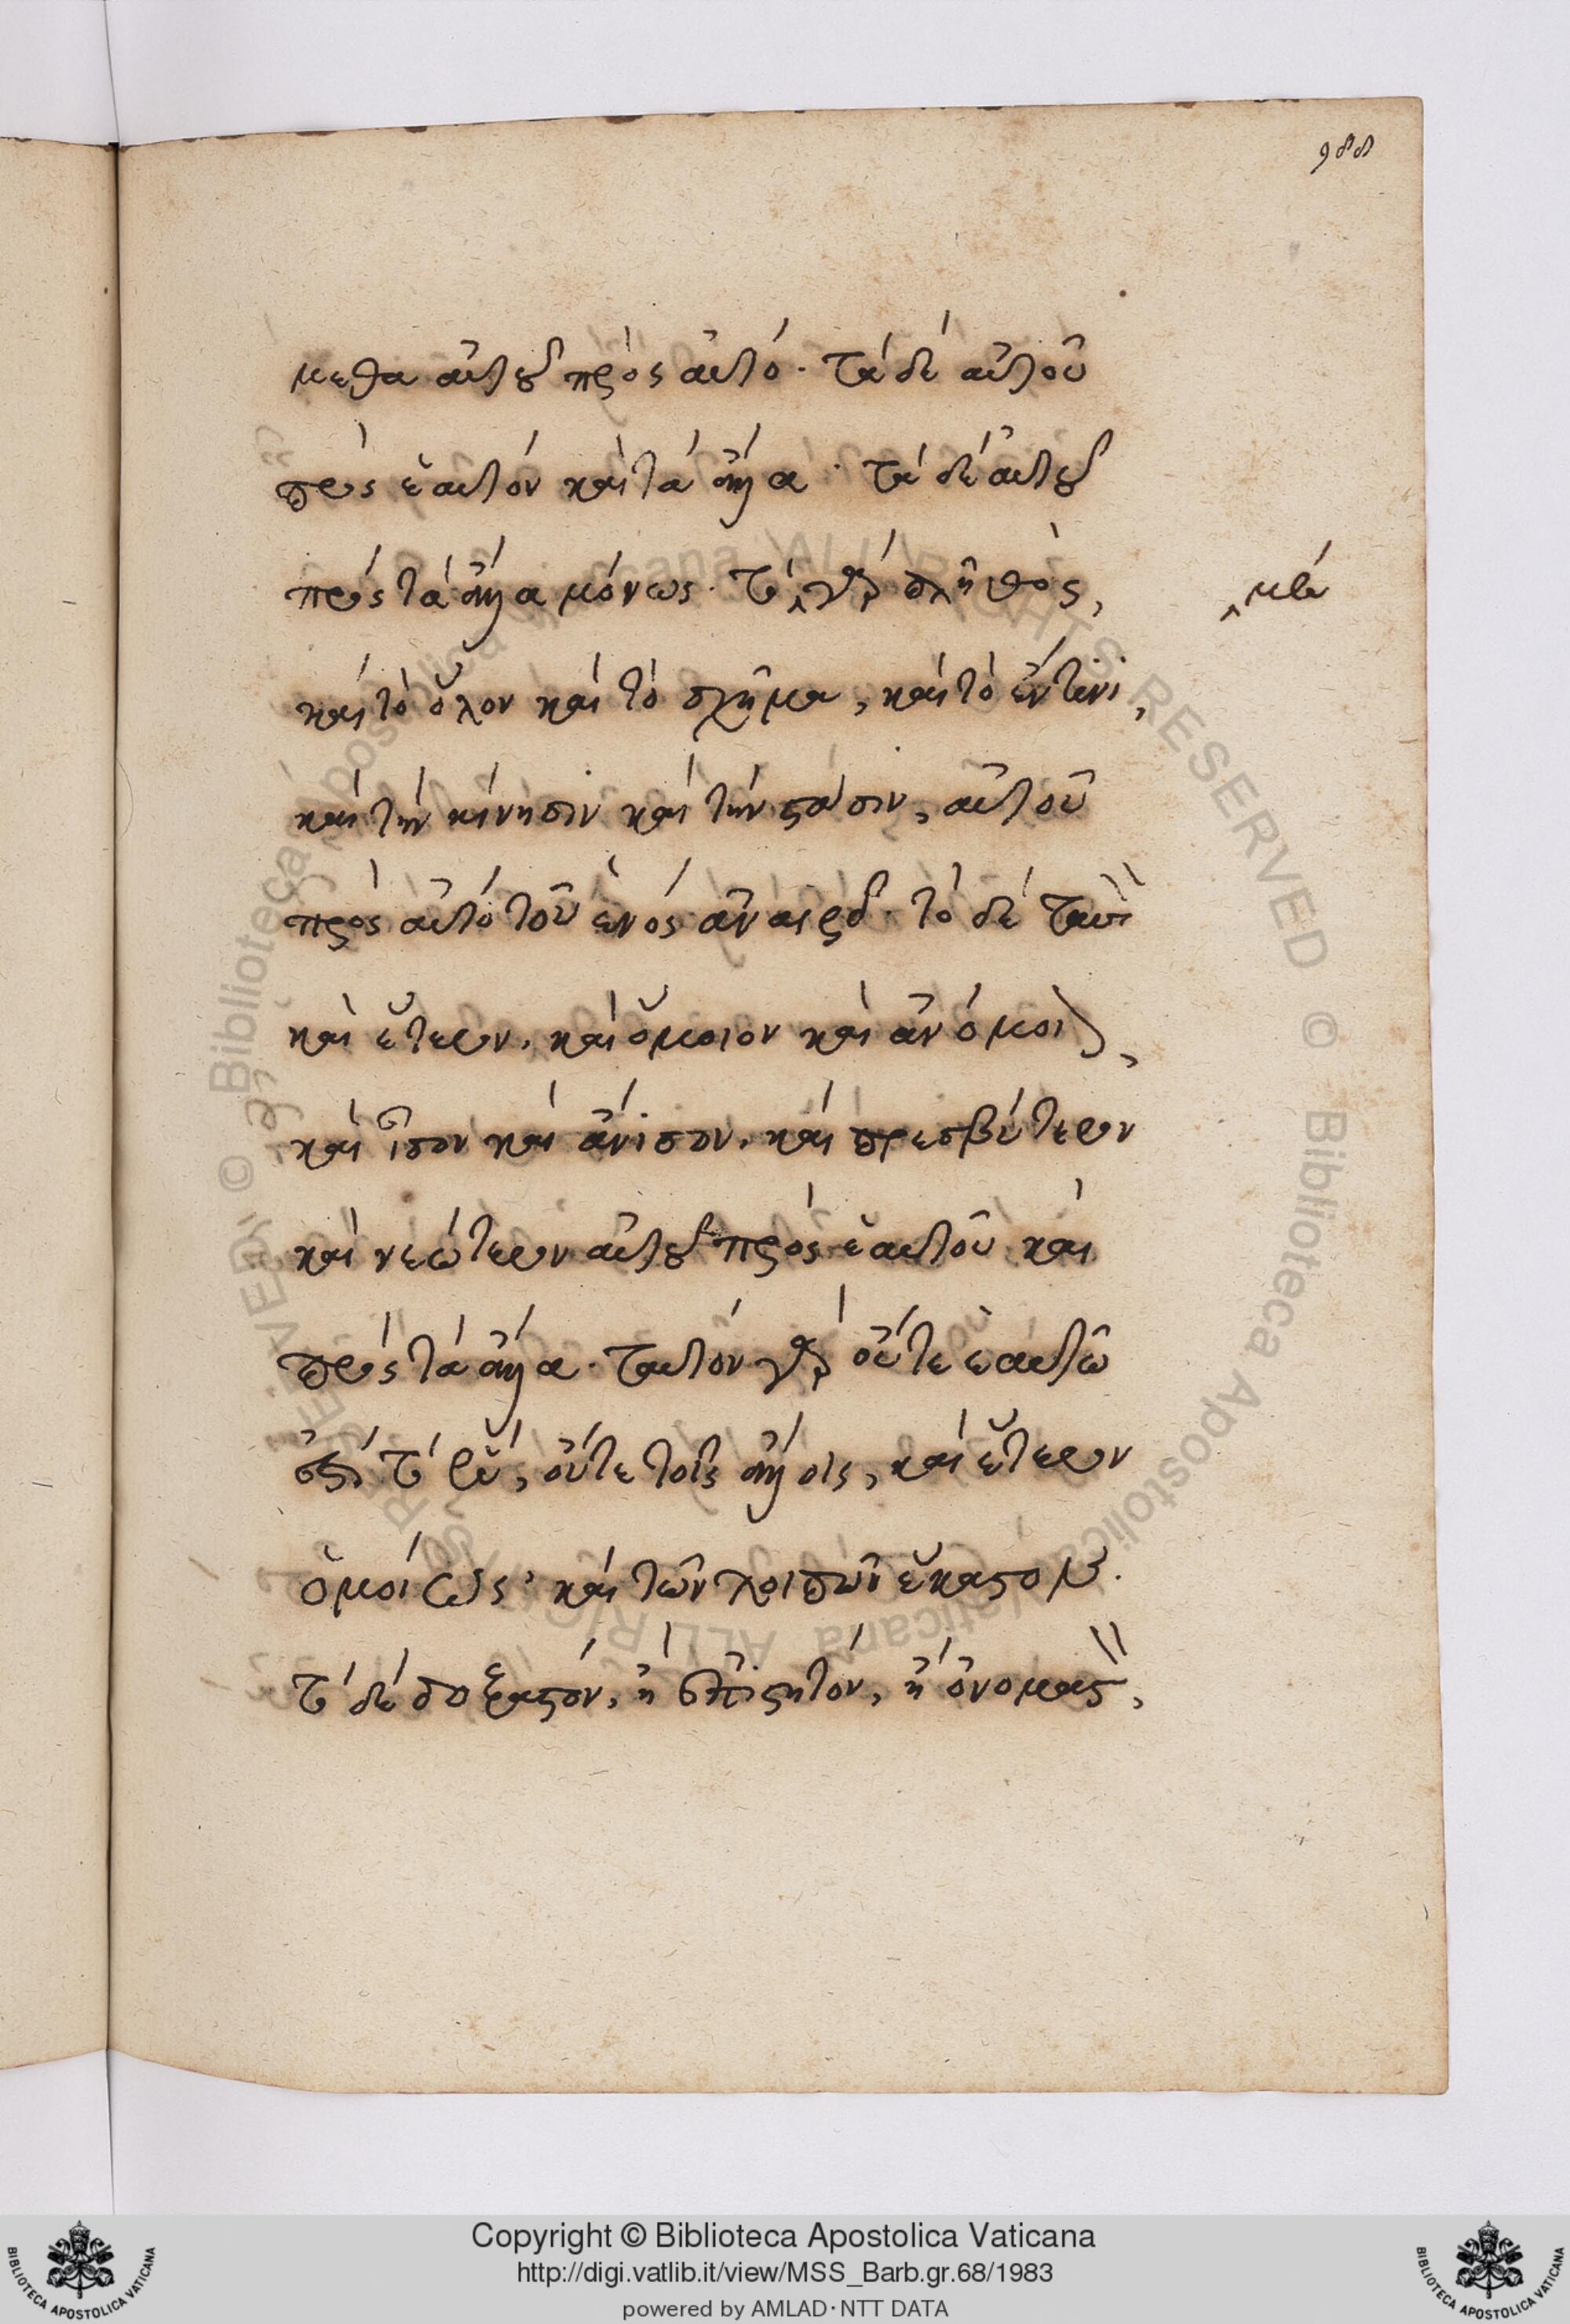 988
μεθα αὐτοῦ πρὸς αὐτό· τὰ δὲ αὐτοῦ
πρὸς ἑαυτὸν καὶ τὰ ἄλλα· τὰ δὲ αὐτοῦ
πρὸς τὰ ἄλλα μόνως· τὸ γὰρ πλῆθος,
μὲν
καὶ τὸ ὅλον καὶ τὸ σχῆμα, καὶ τὸ ἔν τινι,
καὶ τὴν κίνησιν καὶ τὴν στάσιν, αὐτοῦ
πρὸς αὐτὸ τοῦ ἑνὸς ἀναιρεῖ· τὸ δὲ ταυτὸν
καὶ ἕτερον, καὶ ὅμοιον καὶ ἀνόμοιον,
καὶ ἴσον καὶ ἄνισον, καὶ πρεσβύτερον
καὶ νεώτερον αὐτοῦ πρὸς ἑαυτοῦ καὶ
πρὸς τὰ ἄλλα· ταυτὸν γὰρ οὔτε ἑαυτῶ
ἐστὶ τὸ ἕν, οὔτε τοῖς ἄλλοις, καὶ ἕτερον
ὁμοίως· καὶ τῶν λοιπῶν ἕκαστον.
τὸ δὲ δοξαστὸν, ἢ ἐπιστητὸν, ἢ ὀνομαστὸν,
BIBLIOTECA APOSTOLICA VATICANA
Copyright © Biblioteca Apostolica Vaticana
http://digi.vatlib.it/view/MSS_Barb.gr.68/1983
powered by AMLAD·NTT DATA
BIBLIOTECA APOSTOLICA VATICANA
© Biblioteca Apostolica Vaticana ALL RIGHTS RESERVED © Biblioteca Apostolica Vaticana ALL RIGHTS RESERVED